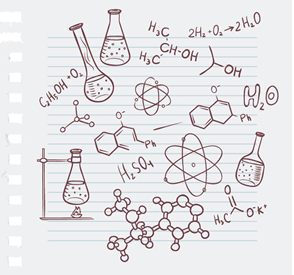 H₃C
CH-OH
H₃C
2H₂ + O₂ → 2H₂O
OH
C₂H₅OH + O₂
O⁻
Ph
O⁻
Ph
H₂O
H₂SO₄
O
H₃C
O⁻K⁺